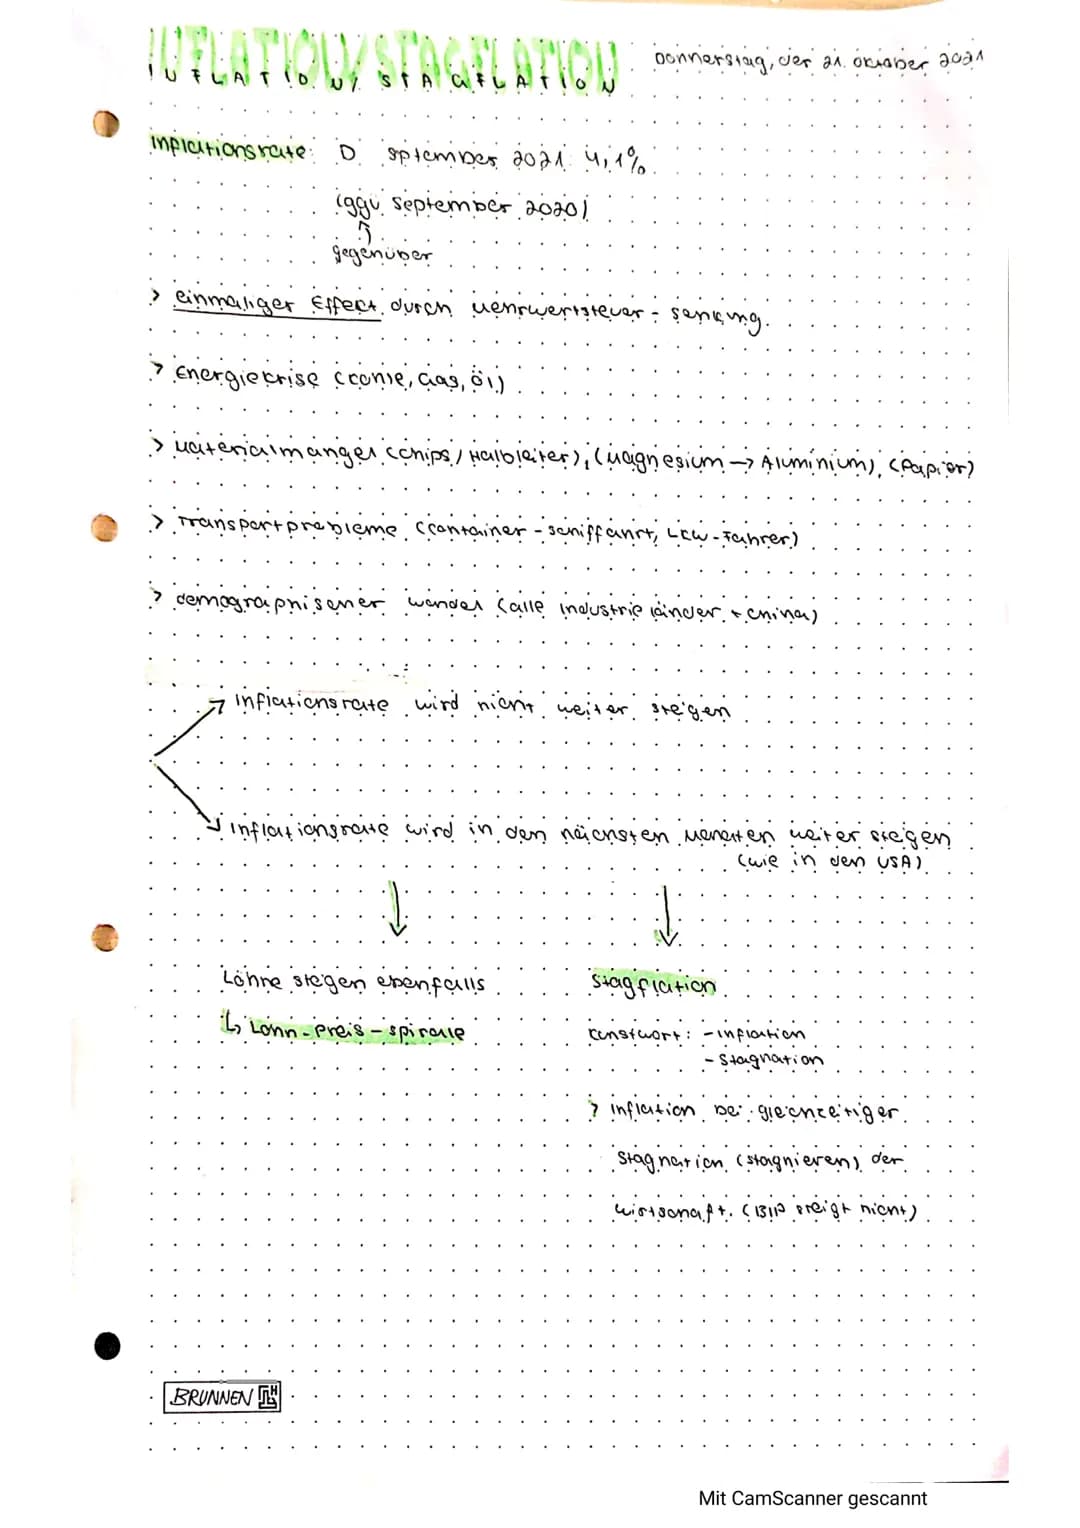 INFLATION/STAGFLATION
INFLATION/STAGFLATION
Donnerstag, der 21. Oktober 2021
Inflationsrate: D sptember 2021: 4,1%
(ggü. September 2020)
gegenüber
> einmaliger Effekt durch Mehrwertsteuer-senkung.
> Energiekrise (Kohle, Gas, Öl)
> Materialmangel (Chips/Halbleiter), (Magnesium → Aluminium), (Papier)
> Transportprobleme (Container-schiffahrt, LKW-Fahrer)
> demographischer wandel (alle industrie länder + china)
Inflationsrate wird nicht weiter steigen
Inflationsrate wird in den nächsten Monaten weiter steigen
(wie in den USA)
Löhne steigen ebenfalls
↳ Lohn-Preis-spirale
Stagflation
Kunstwort: -inflation
-Stagnation
> inflation bei gleichzeitiger
Stagnation (stagnieren) der
wirtschaft. (BIP steigt nicht)
BRUNNEN
Mit CamScanner gescannt